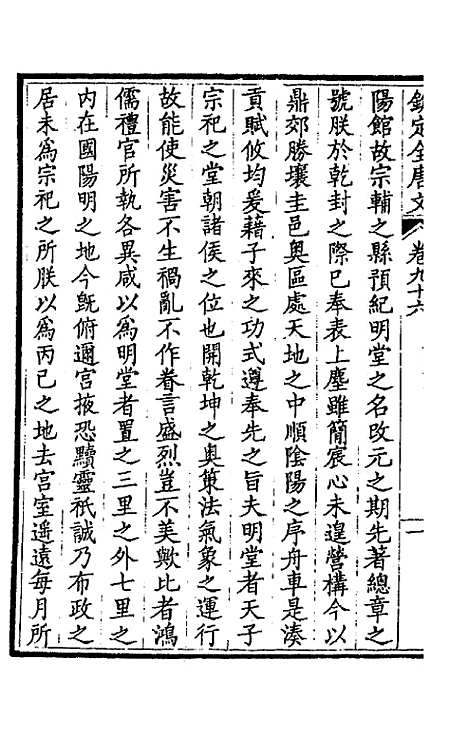 欽定全唐文　卷九十六　一
陽館故宗輔之縣預紀明堂之名改元之期先著總章之
號朕於乾封之際已奉表上塵雖簡宸心未遑營構今以
鼎郊勝壤圭邑奥區處天地之中順陰陽之序舟車是湊
貢賦攸均爰藉子來之功式遵奉先之旨夫明堂者天子
宗祀之堂朝諸侯之位也開乾坤之奥策法氣象之運行
故能使災害不生禍亂不作眷言盛烈豈不美歟比者鴻
儒禮官所執各異咸以為明堂者置之三里之外七里之
内在國陽明之地今既俯邇宮掖恐黷靈祇誠乃布政之
居未為宗祀之所朕以為丙巳之地去宮室遥遠每月所